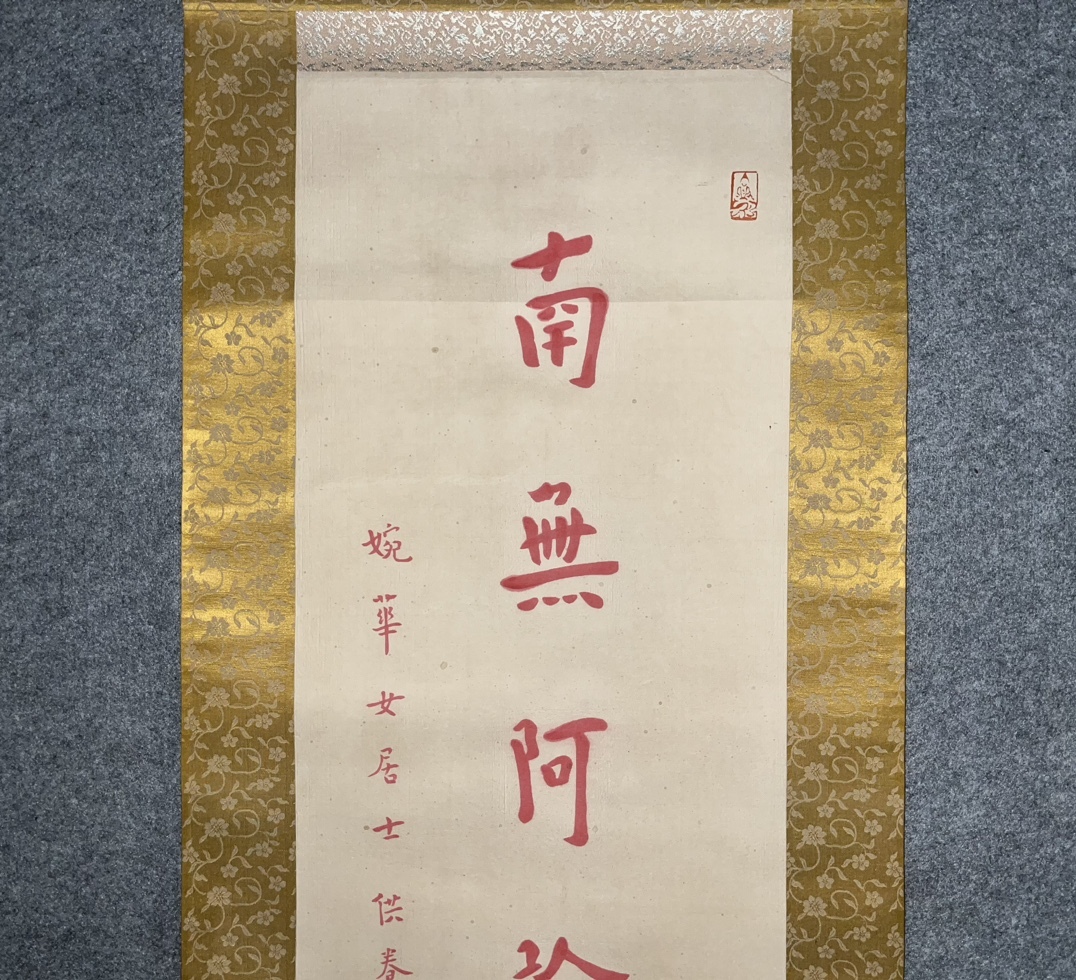 南無阿
婉華女居士供養